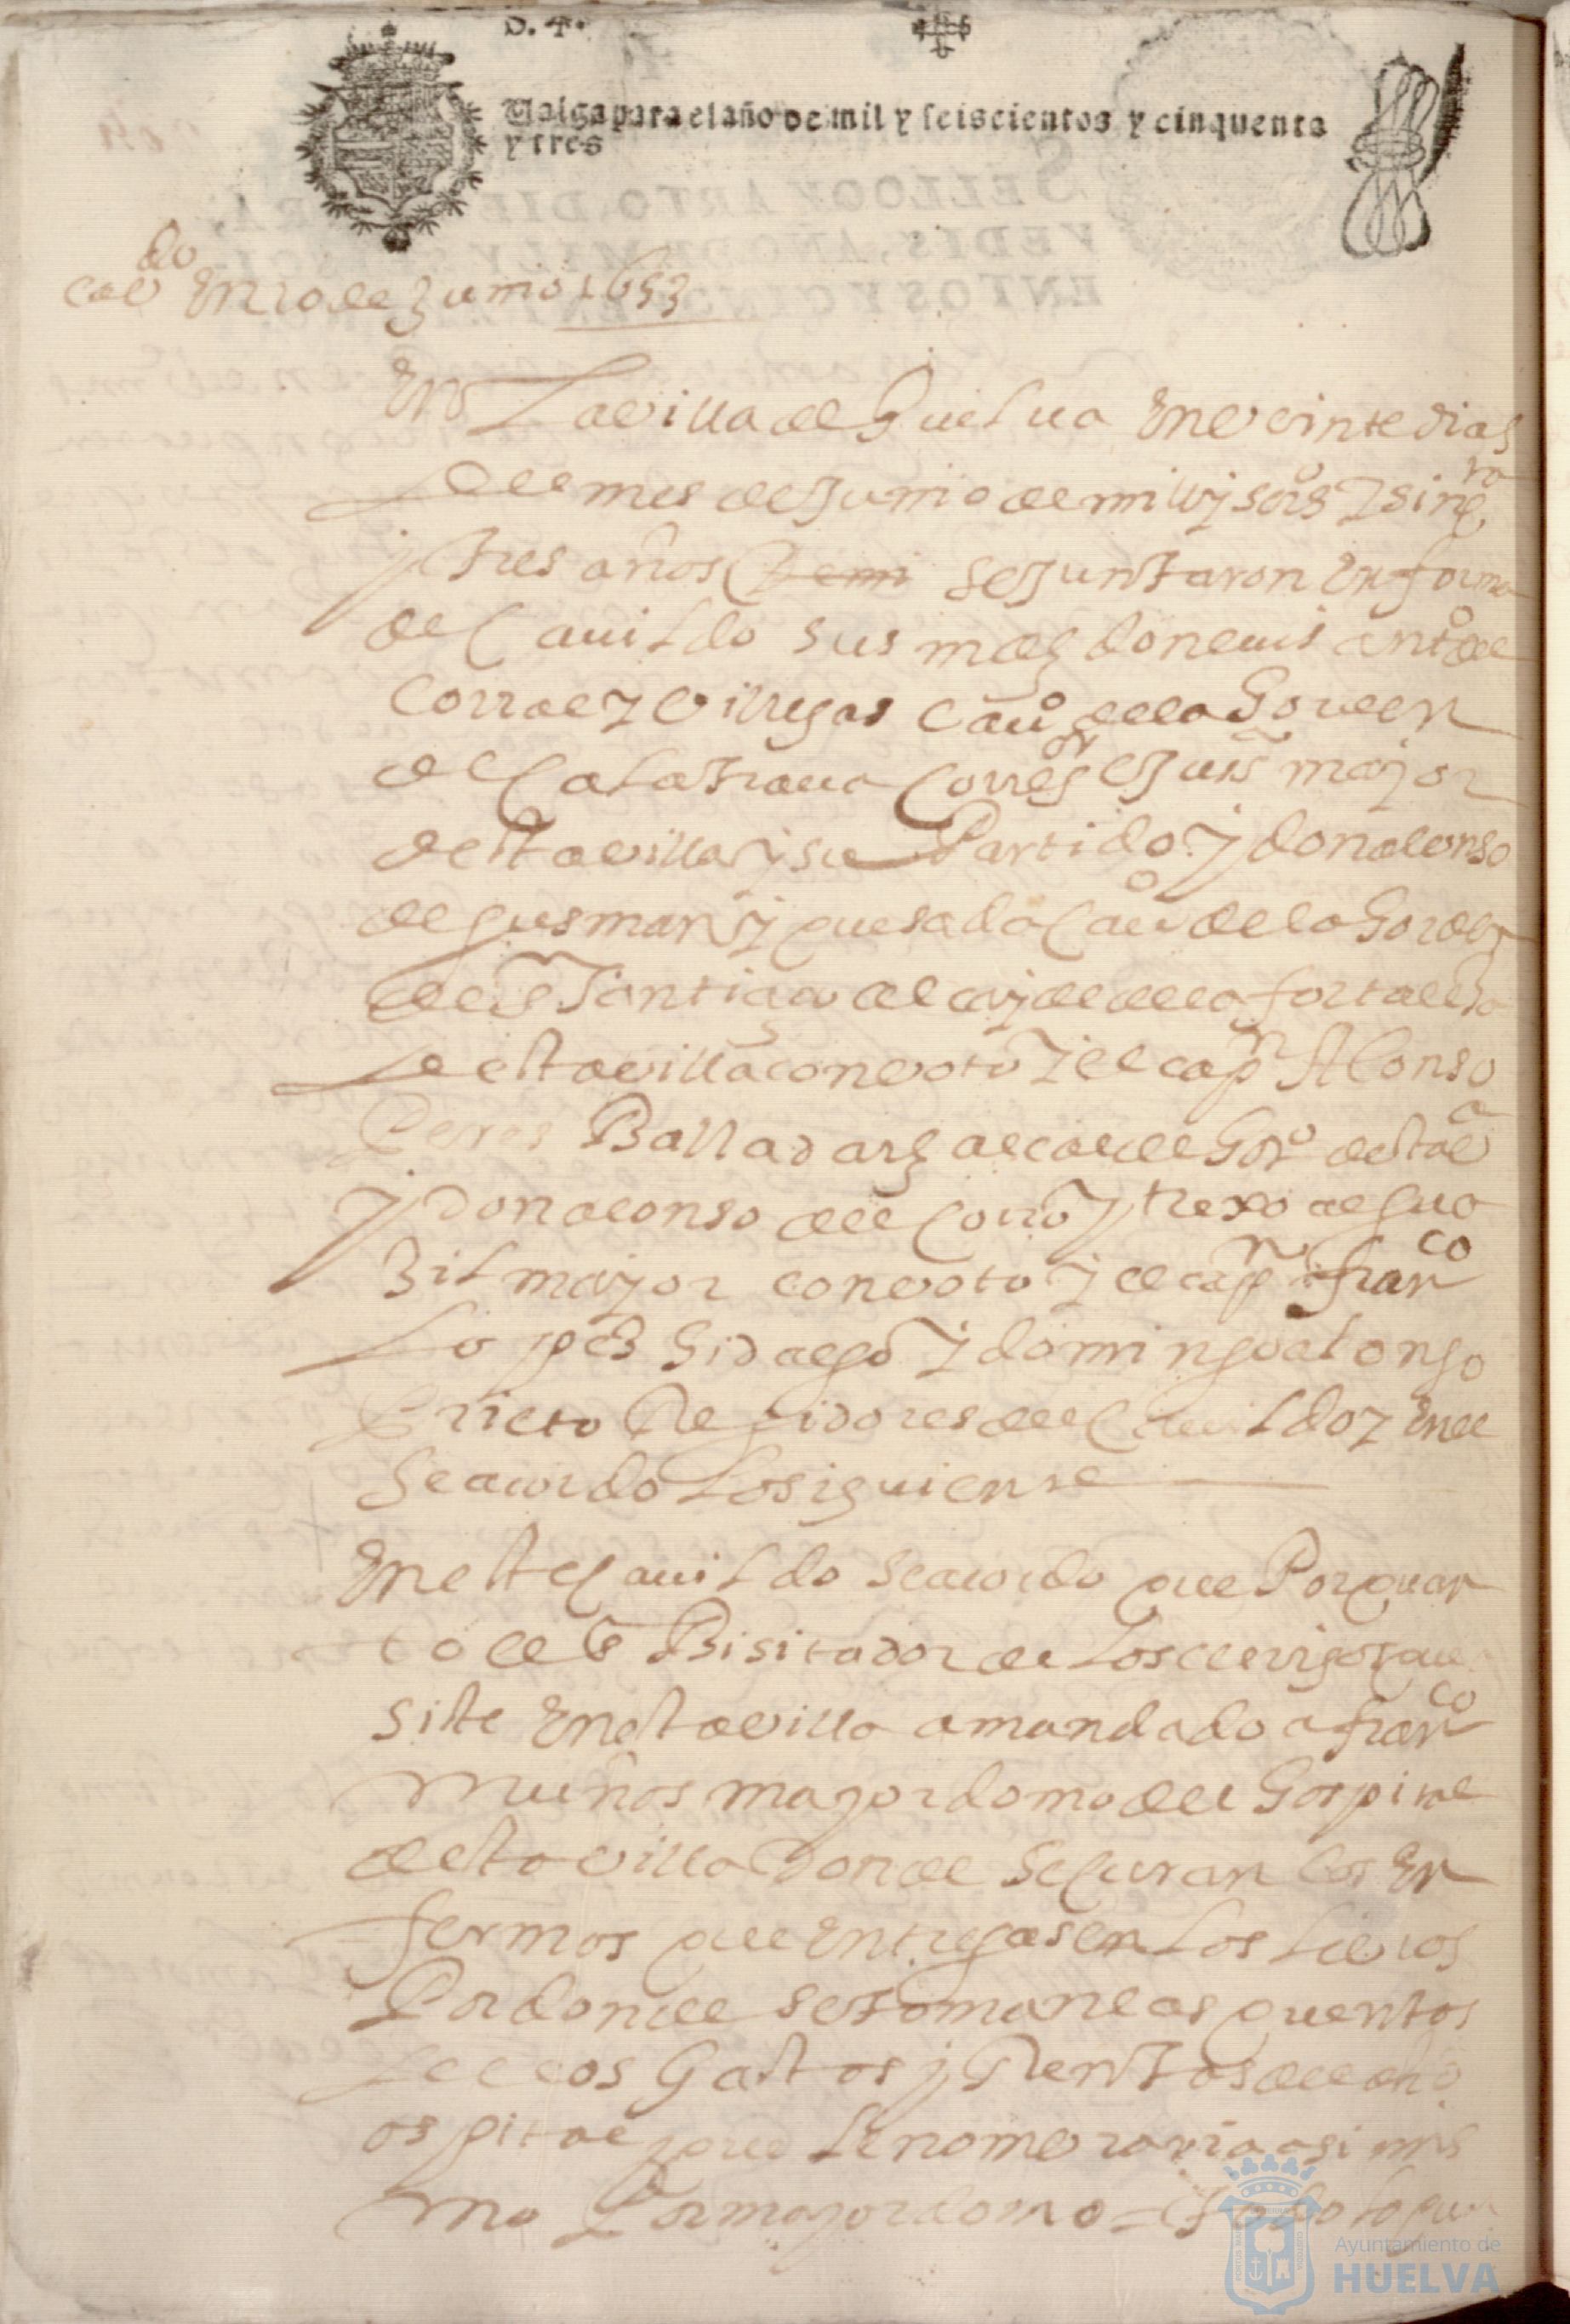 Valga para el año de mil y seiscientos y cinquenta
y tres
cavdo En 20 de Junio 1653
En La villa de Guelua En veinte dias
del mes de Junio de mill y seiso y sinqta
y tres años se Juntaron En forma
de Cauildo sus mds don luis anto del
Corral y Villegas Cauo de la Horden
de Calatraua Corregor y Jues mayor
desta villa y su Partido y don alonso
de gusman y quesada Cauo de la Horden
de Santiago alcayde de la fortalesa
desta villa con voto y el capn Alonso
Peres Balladars alcalde Hordo desta va
y Don alonso del Corro y trexo algua
zil mayor con voto y el capn franco
Lopes Hidalgo y domingo alonso
Prieto Regidores del Cauildo y En el
se acordo Lo siguiente
En este Cauildo se acordo que Por quan
to el Bisitador de Los clerigos que
siste En esta villa a mandado a franco
muños mayordomo del Hospital
desta villa Donde se Curan los En
fermos que Entregasen Los Libros
Por donde se toman las quentas
de los Gastos y Rentas del dho
ospital que se nombraria asi mis
mo Por mayordomo =
Ayuntamiento de
HUELVA